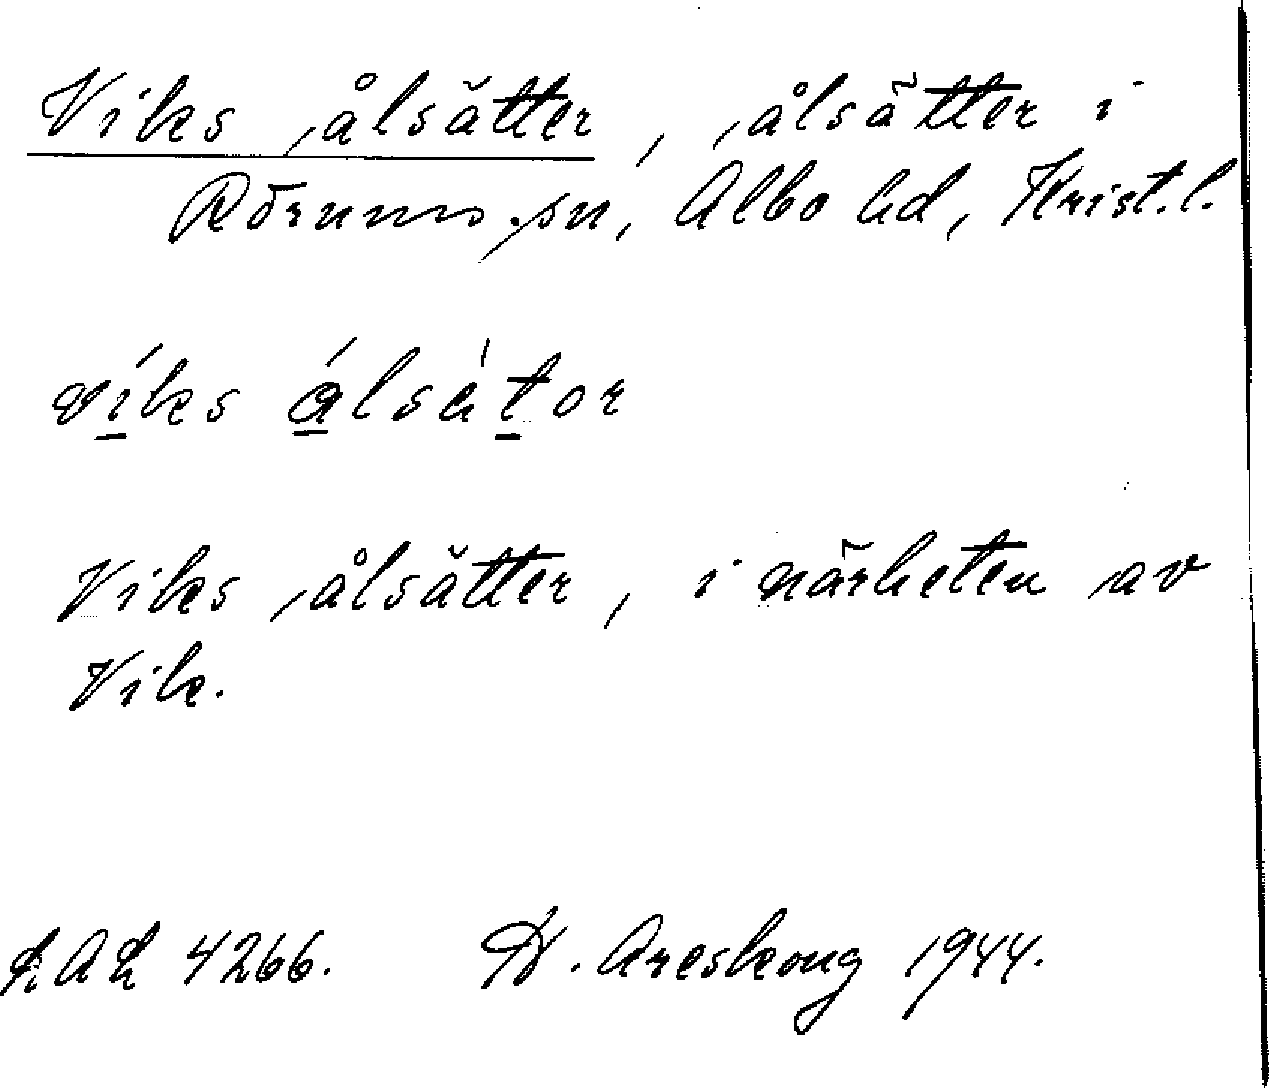 Viks ålsätter, ålsätter i
Rörums sn, Albo hd, Krist.l.
víks ålsätor
Viks ålsätter, i närheten av
Vik.
LAL 4266. H. Areskoug 1944.